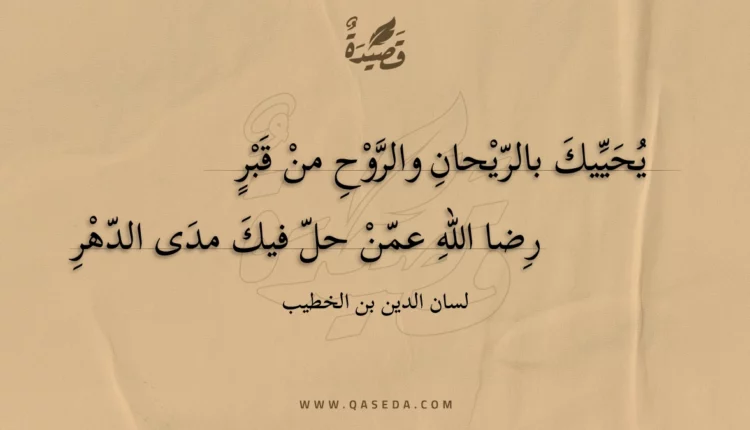 قَصِيدَةٌ
يُحَيِّيكَ بالرّيْحانِ والرَّوْحِ منْ قَبْرٍ
رِضا اللهِ عمّنْ حلّ فيكَ مدَى الدّهْرِ
لسان الدين بن الخطيب
WWW.QASEDA.COM